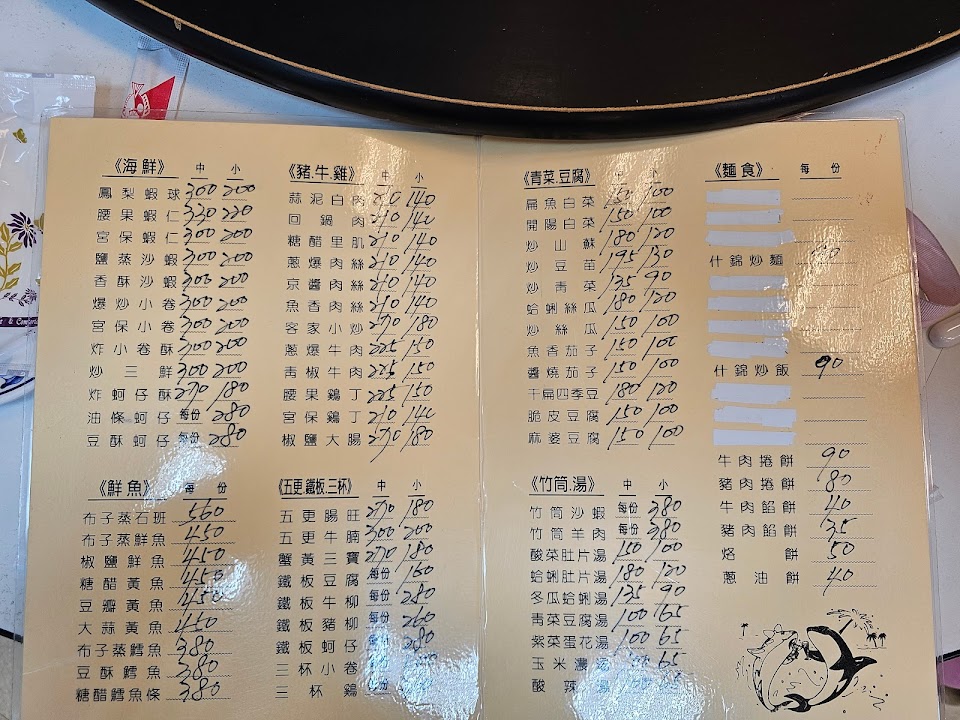 《海鮮》 中 小
鳳梨蝦球 300 200
腰果蝦仁 330 220
宮保蝦仁 300 200
鹽蒸沙蝦 300 200
香酥沙蝦 300 200
爆炒小卷 300 200
宮保小卷 300 200
炸小卷酥 300 200
炒三鮮 300 200
炸蚵仔酥 270 180
油條蚵仔 每份 280
豆酥蚵仔 每份 280
《鮮魚》 每份
布子蒸石班 560
布子蒸鮮魚 450
椒鹽鮮魚 450
糖醋黃魚 450
豆瓣黃魚 450
大蒜黃魚 450
布子蒸鱈魚 380
豆酥鱈魚 380
糖醋鱈魚條 380
《豬.牛.雞》 中 小
蒜泥白肉 210 140
回鍋肉 210 140
糖醋里肌 210 140
蔥爆肉絲 210 140
京醬肉絲 210 140
魚香肉絲 210 140
客家小炒 270 180
蔥爆牛肉 225 150
青椒牛肉 225 150
腰果鷄丁 225 150
宮保鷄丁 210 140
椒鹽大腸 270 180
《五更.鐵板.三杯》 中 小
五更腸旺 270 180
五更牛腩 300 200
蟹黃三寶 270 180
鐵板豆腐 每份 160
鐵板牛柳 每份 280
鐵板豬柳 每份 260
鐵板蚵仔 每份 280
三杯小卷 每份
三杯鷄 每份
《青菜.豆腐》 中 小
扁魚白菜 150 100
開陽白菜 150 100
炒山蘇 180 120
炒豆苗 195 130
炒青菜 135 90
蛤蜊絲瓜 180 120
炒絲瓜 150 100
魚香茄子 150 100
醬燒茄子 150 100
干扁四季豆 180 120
脆皮豆腐 150 100
麻婆豆腐 150 100
《竹筒.湯》 中 小
竹筒沙蝦 每份 380
竹筒羊肉 每份 380
酸菜肚片湯 150 100
蛤蜊肚片湯 180 120
冬瓜蛤蜊湯 135 90
青菜豆腐湯 100 65
紫菜蛋花湯 100 65
玉米濃湯 65
酸辣湯 65
《麵食》 每份
什錦炒麵
什錦炒飯 90
牛肉捲餅 90
豬肉捲餅 80
牛肉餡餅 40
豬肉餡餅 35
烙餅 50
蔥油餅 40